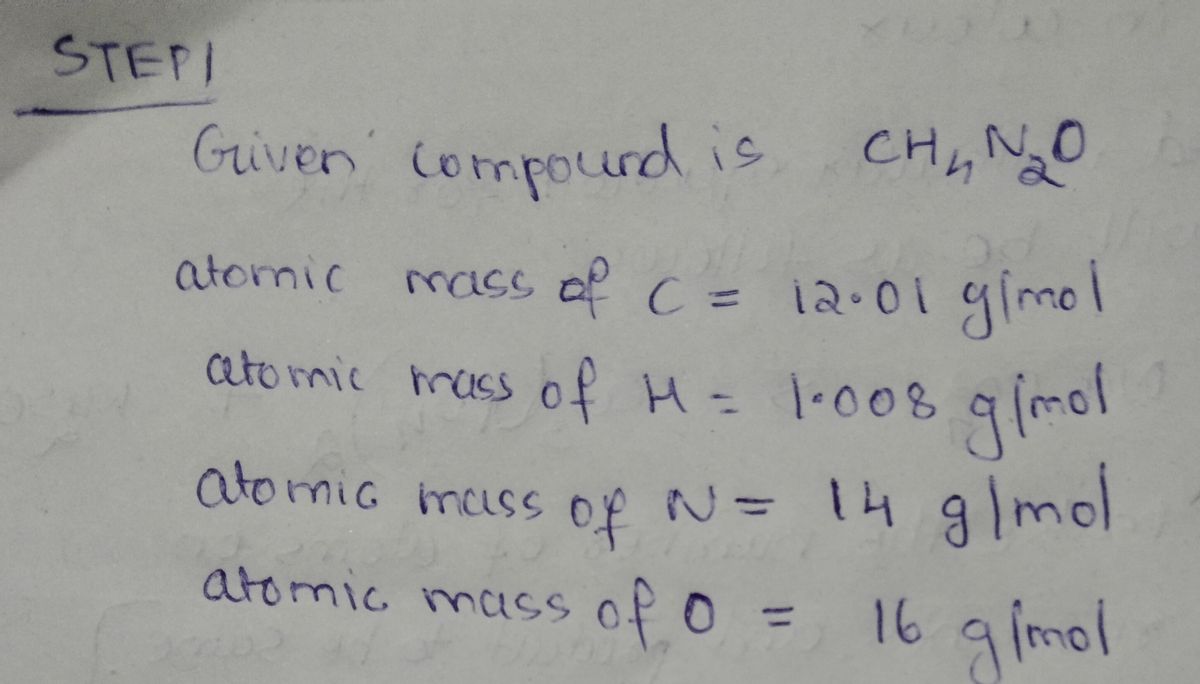 STEP 1
Given compound is CH₄N₂O
atomic mass of C = 12.01 g/mol
atomic mass of H = 1.008 g/mol
atomic mass of N = 14 g/mol
atomic mass of O = 16 g/mol